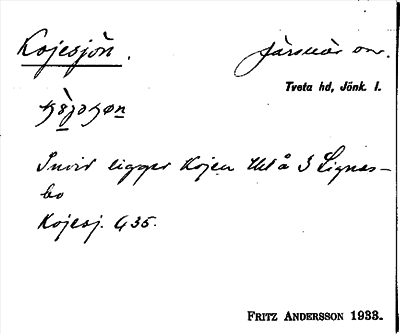 Kojesjön.
Järsnäs sn.
Tveta hd, Jönk. l.
Invid ligger Kojen Utl å S Lignas-
bo
Kojesj. G 35.
FRITZ ANDERSSON 1933.